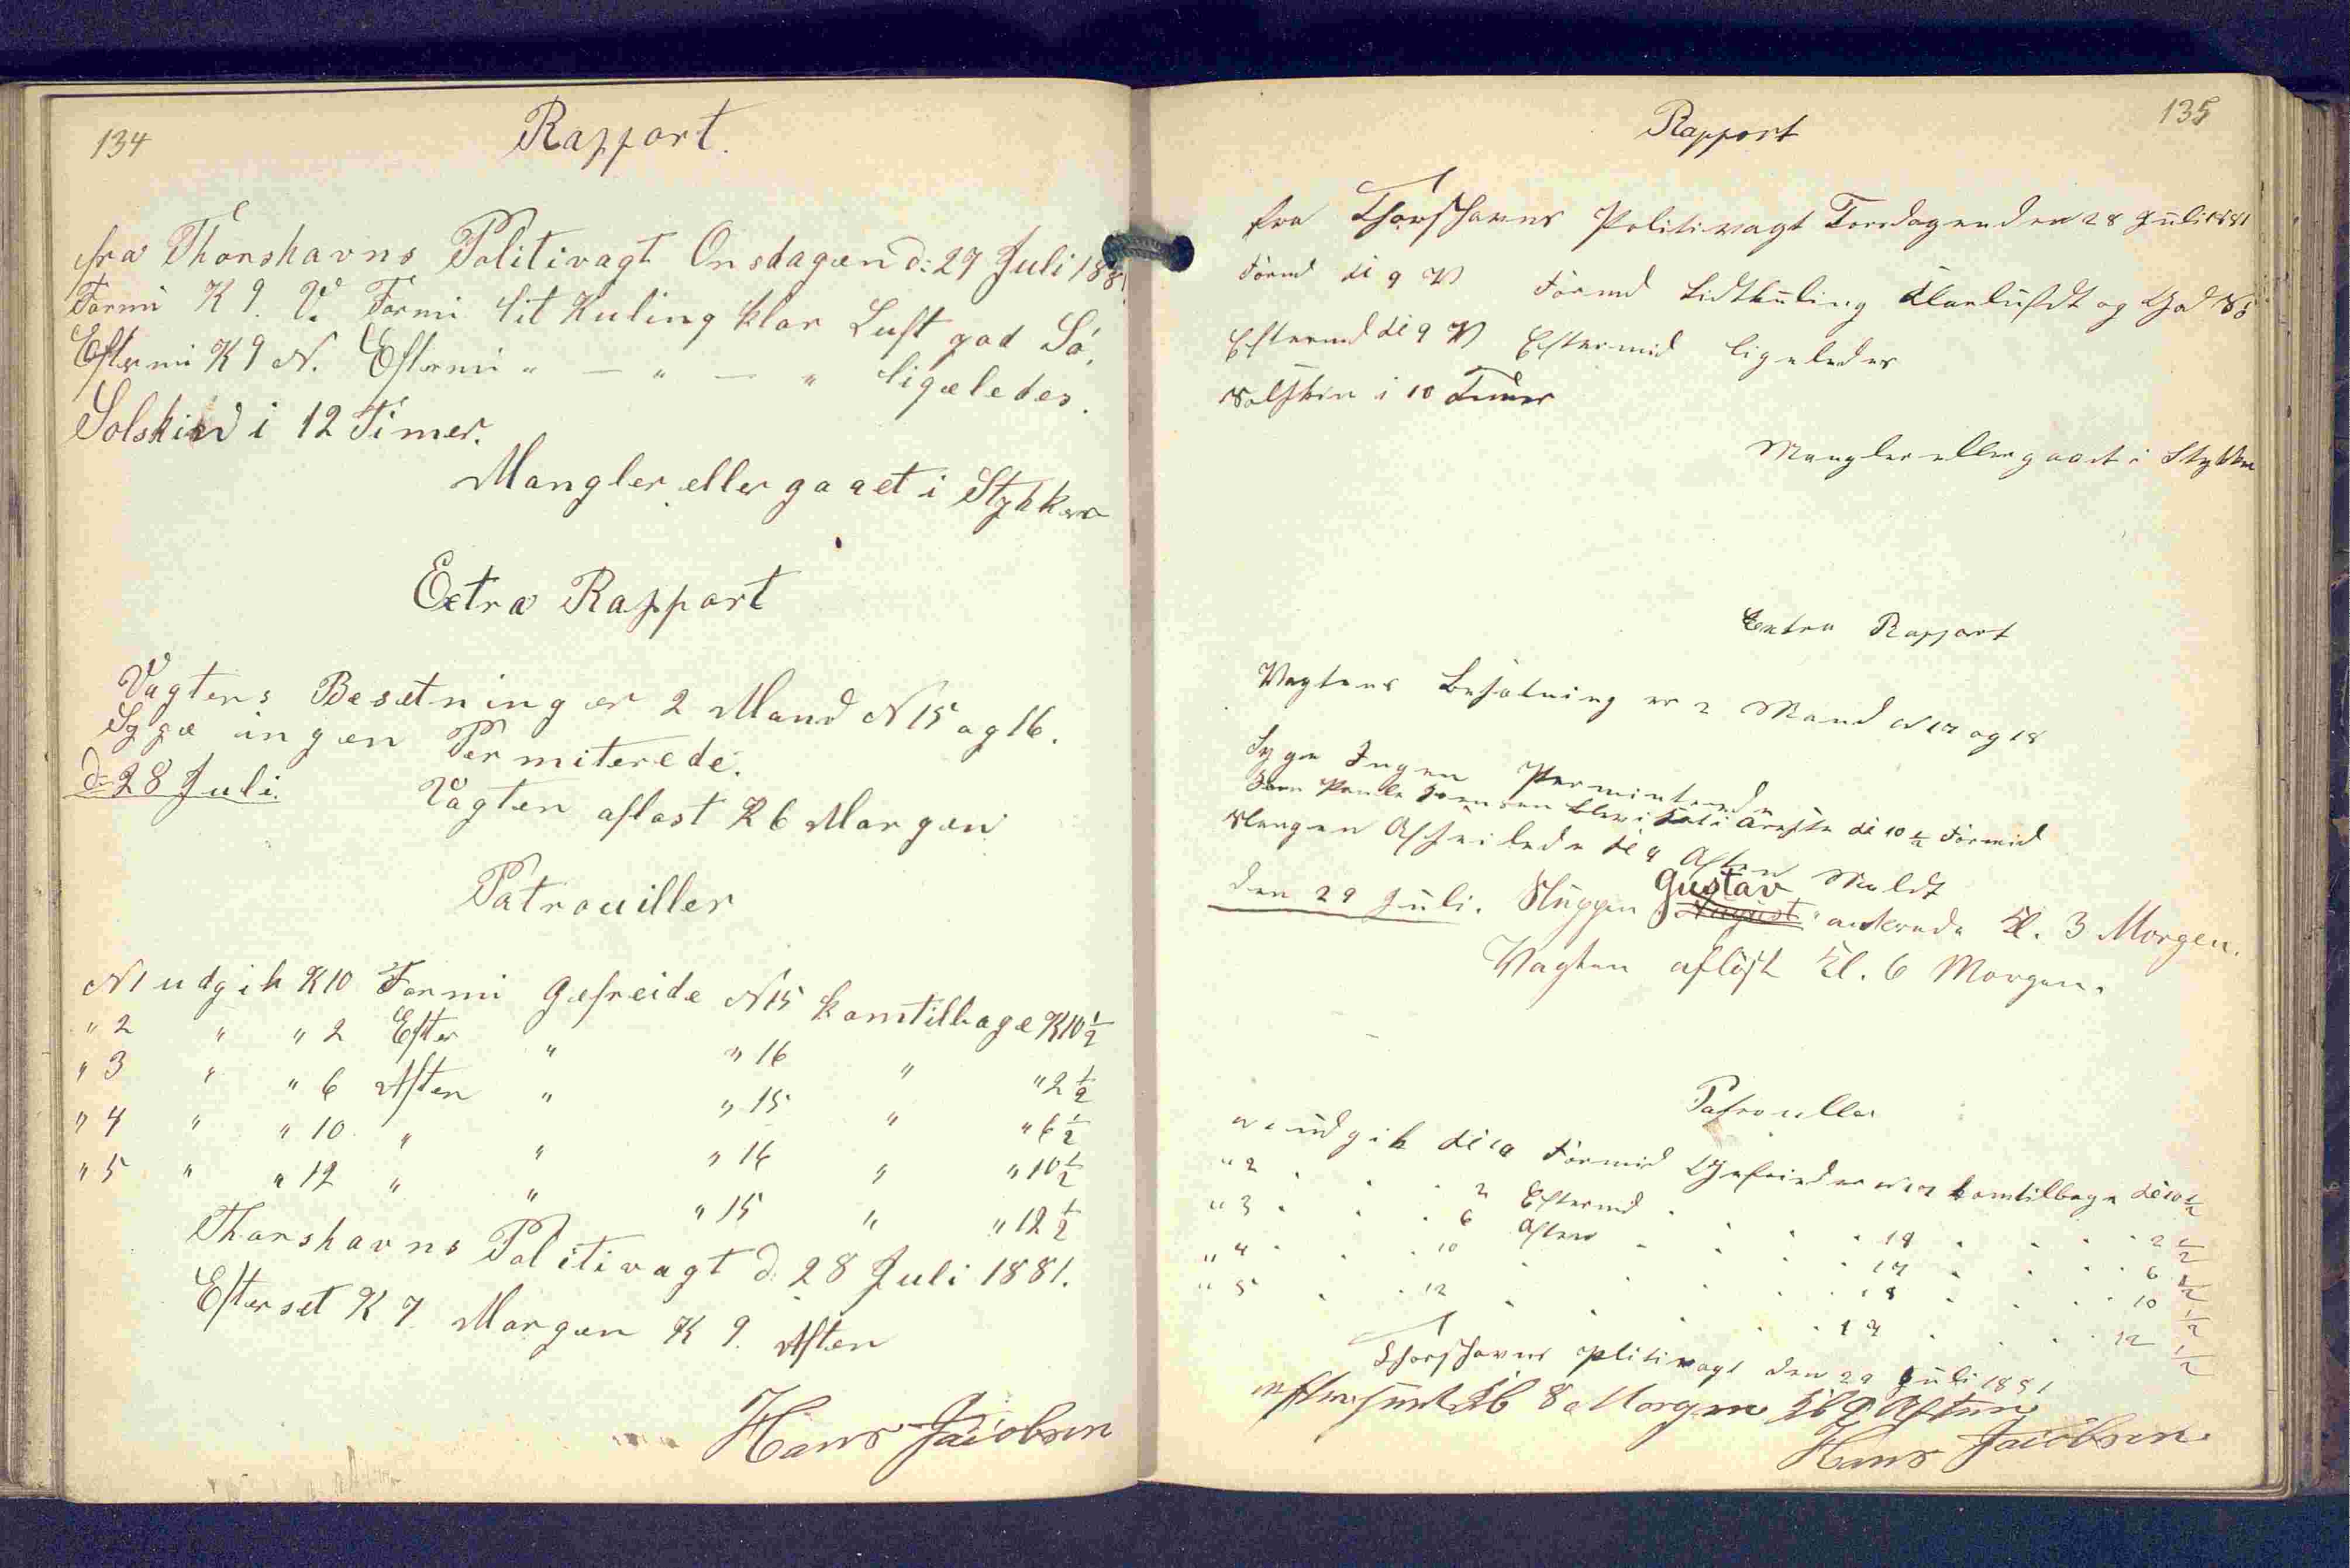 134
Rapport.
fra Thorshavns Politivagt Onsdagen d: 27 Juli 1881.
Formi K 9. V. Formi lit Kuling klar Luft god Sö.
Eftermi K 9 N. Eftermi " — " — " ligeledes.
Solskind i 12 Timer.
Mangler eller gaaet i Stykker
Extra Rapport
Vagtens Besetning er 2 Mand N 15 og 16.
Syge ingen Permiterede.
d: 28 Juli. Vagten aflost K 6 Morgen
Patrouiller
N 1 udgik K 10 Formi Gefreide N 15 kom tilbage K 10 1/2
" 2 " " 2 Efter " " 16 " " 2 1/2
" 3 " " 6 Aften " " 15 " " 6 1/2
" 4 " " 10 " " " 16 " " 10 1/2
" 5 " " 12 " " " 15 " " 12 1/2
Thorshavns Politivagt d. 28 Juli 1881.
Efterset K 7 Morgen K 9. Aften
Hans Jacobsen
135
Rapport
fra Thorshavns Politivagt Torsdagen den 28 Juli 1881
Formd Kl 9 V Formd Lidt Kuling Klar Lufdt og God Sö
Eftermd Kl 9 V Eftermid ligeledes
Solskin i 10 Timer
Mangler eller gaaet i Stykker
Extra Rapport
Vagtens Besætning er 2 Mand N 17 og 18
Syge Ingen Permiterede
Joen Poule Joensen blev i Arreste Kl 10 1/2 Formid
Afseilede Kl Aften
den 29 Juli. Sluppen Gustav August" ankrede Kl. 3 Morgen.
Vagten aflöst Kl. 6 Morgen.
Patrouller
N 1 udgik Kl 10 Formid Gefreider N 17 kom tilbage Kl 10 1/2
" 2 . . . 2 Eftermd . . . 18 . . . 2 1/2
" 3 . . . 6 Aften . . . 17 . . . 6 1/2
" 4 . . . 10 . . . 18 . . . 10 1/2
" 5 . . . 12 . . . 17 . . . 12 1/2
Thorshavns Plitivagt den 29 Juli 1881
Kl 8 Morgen Kl 9 Aften
Hans Jacobsen